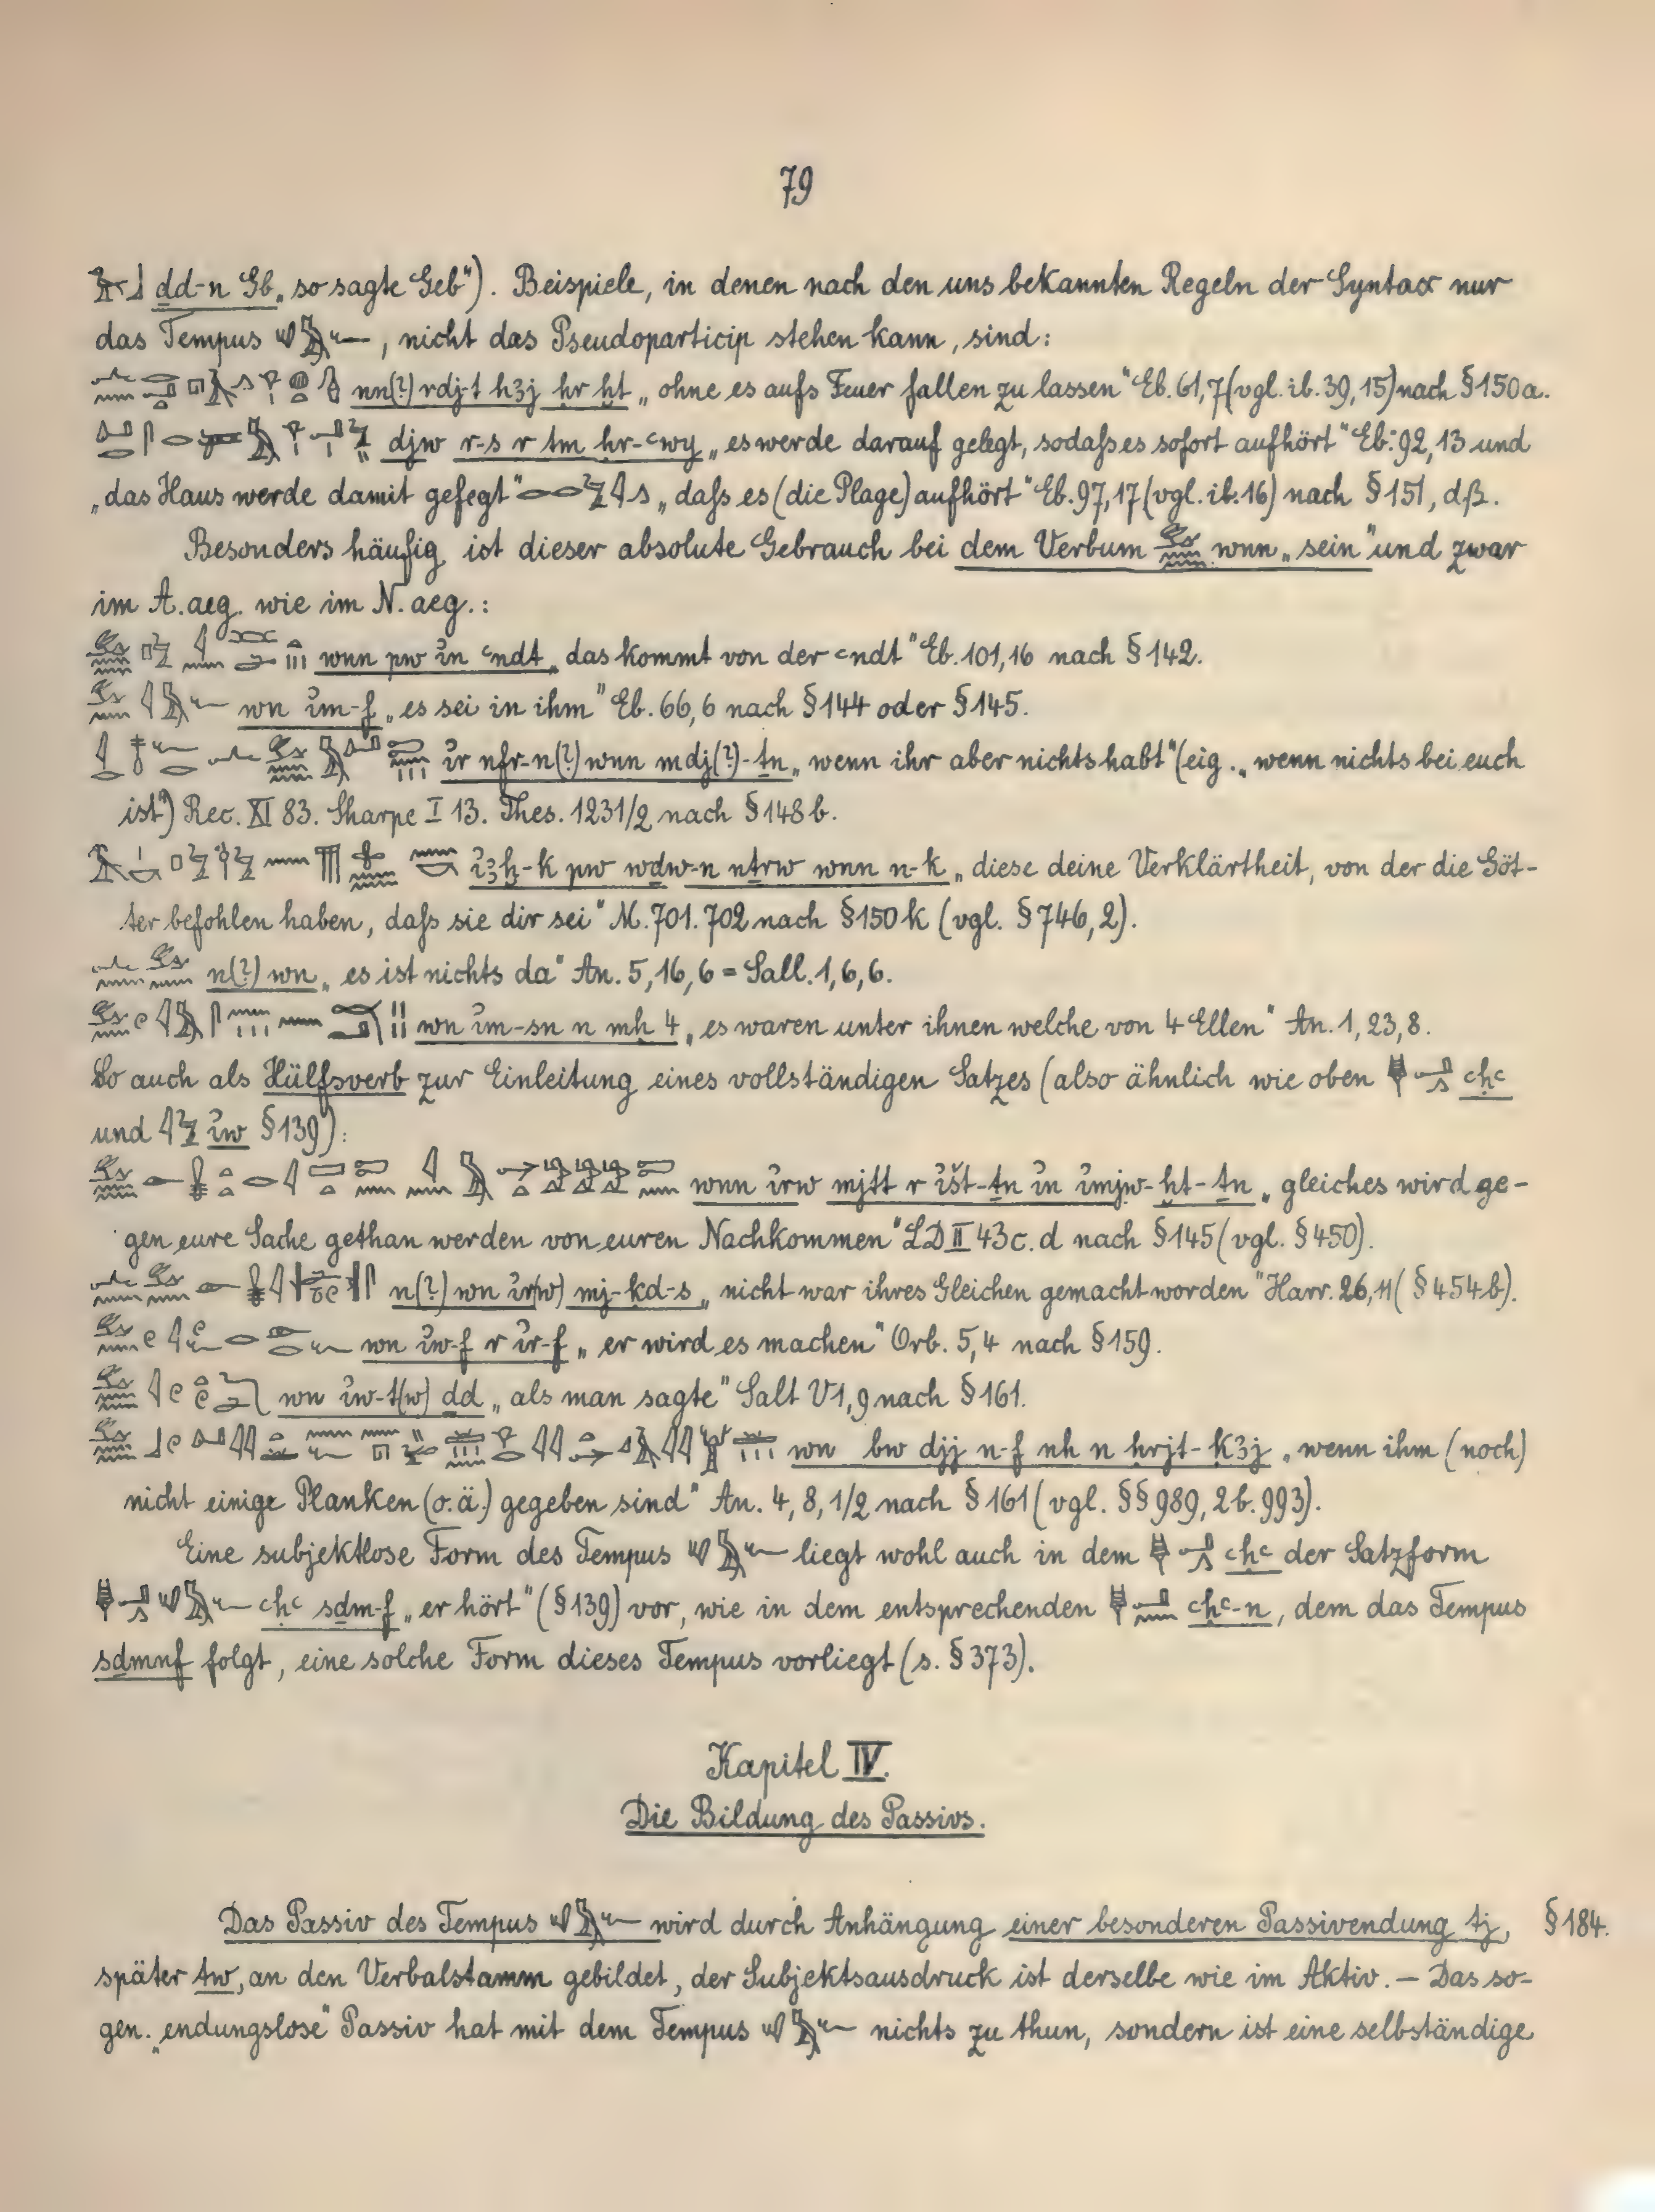 79
ḏd-n Gb „so sagte Geb“). Beispiele, in denen nach den uns bekannten Regeln der Syntax nur
das Tempus , nicht das Pseudoparticip stehen kann, sind:
nn(?) rdj-t hꜣj ḥr ḫt „ohne es aufs Feuer fallen zu lassen“ Eb. 61,7 (vgl. ib. 39,15) nach § 150a.
djw r-s r tm ḥr-ꜥwy „es werde darauf gelegt, sodaſs es sofort aufhört“ Eb. 92,13 und
„das Haus werde damit gefegt“ „daſs es (die Plage) aufhört“ Eb. 97,17 (vgl. ib. 16) nach § 151, dβ.
Besonders häufig ist dieser absolute Gebrauch bei dem Verbum wnn „sein“ und zwar
im A.aeg. wie im N.aeg.:
wnn pw ı͗n ꜥndt „das kommt von der ꜥndt“ Eb. 101,16 nach § 142.
wn ı͗m-f „es sei in ihm“ Eb. 66,6 nach § 144 oder § 145.
ı͗r nfr-n(?) wnn mdj(?)-ṯn „wenn ihr aber nichts habt“ (eig. „wenn nichts bei euch
ist“) Rec. XI 83. Sharpe I 13. Thes. 1231/2 nach § 148b.
ı͗ꜣḫ-k pw wḏw-n nṯrw wnn n-k „diese deine Verklärtheit, von der die Göt-
ter befohlen haben, daſs sie dir sei“ M. 701. 702 nach § 150k (vgl. § 746,2).
n(?) wn „es ist nichts da“ An. 5,16,6 = Sall. 1,6,6.
wn ı͗m-sn n mḥ 4 „es waren unter ihnen welche von 4 Ellen“ An. 1,23,8.
So auch als Hülfsverb zur Einleitung eines vollständigen Satzes (also ähnlich wie oben ꜥḥꜥ
und ı͗w § 139):
wnn ı͗rw mjtt r ı͗št-ṯn ı͗n ı͗mjw-ḫt-ṯn „gleiches wird ge-
gen eure Sache gethan werden von euren Nachkommen“ LD II 43c.d nach § 145 (vgl. § 450).
n(?) wn ı͗r(w) mj-ḳd-s „nicht war ihres Gleichen gemacht worden“ Harr. 26,11 (§ 454b).
wn ı͗w-f r ı͗r-f „er wird es machen“ Orb. 5,4 nach § 159.
wn ı͗w-t(w) ḏd „als man sagte“ Salt V1,9 nach § 161.
wn bw djj n-f nh n ḥrjt-ḳꜣj „wenn ihm (noch)
nicht einige Planken (o.ä.) gegeben sind“ An. 4,8,1/2 nach § 161 (vgl. §§ 989,2b. 993).
Eine subjektlose Form des Tempus liegt wohl auch in dem ꜥḥꜥ der Satzform
ꜥḥꜥ sḏm-f „er hört“ (§ 139) vor, wie in dem entsprechenden ꜥḥꜥ-n, dem das Tempus
sḏmnf folgt, eine solche Form dieses Tempus vorliegt (s. § 373).
Kapitel IV.
Die Bildung des Passivs.
Das Passiv des Tempus wird durch Anhängung einer besonderen Passivendung tj, § 184.
später tw, an den Verbalstamm gebildet, der Subjektsausdruck ist derselbe wie im Aktiv. – Das so-
gen. „endungslose“ Passiv hat mit dem Tempus nichts zu thun, sondern ist eine selbständige